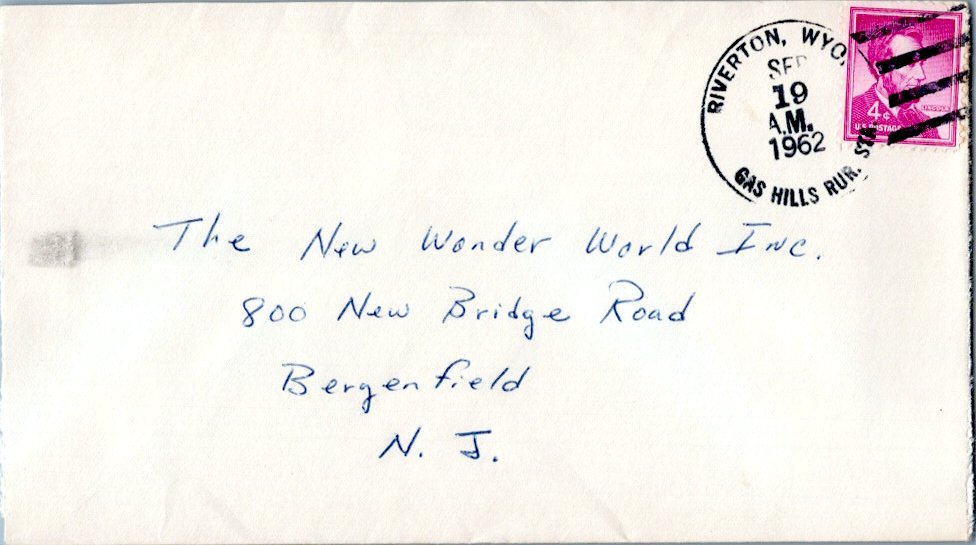 RIVERTON, WYO.
SEP
19
A.M.
1962
GAS HILLS RUR. STA
4¢
LINCOLN
U.S. POSTAGE
The New Wonder World Inc.
800 New Bridge Road
Bergenfield
N. J.